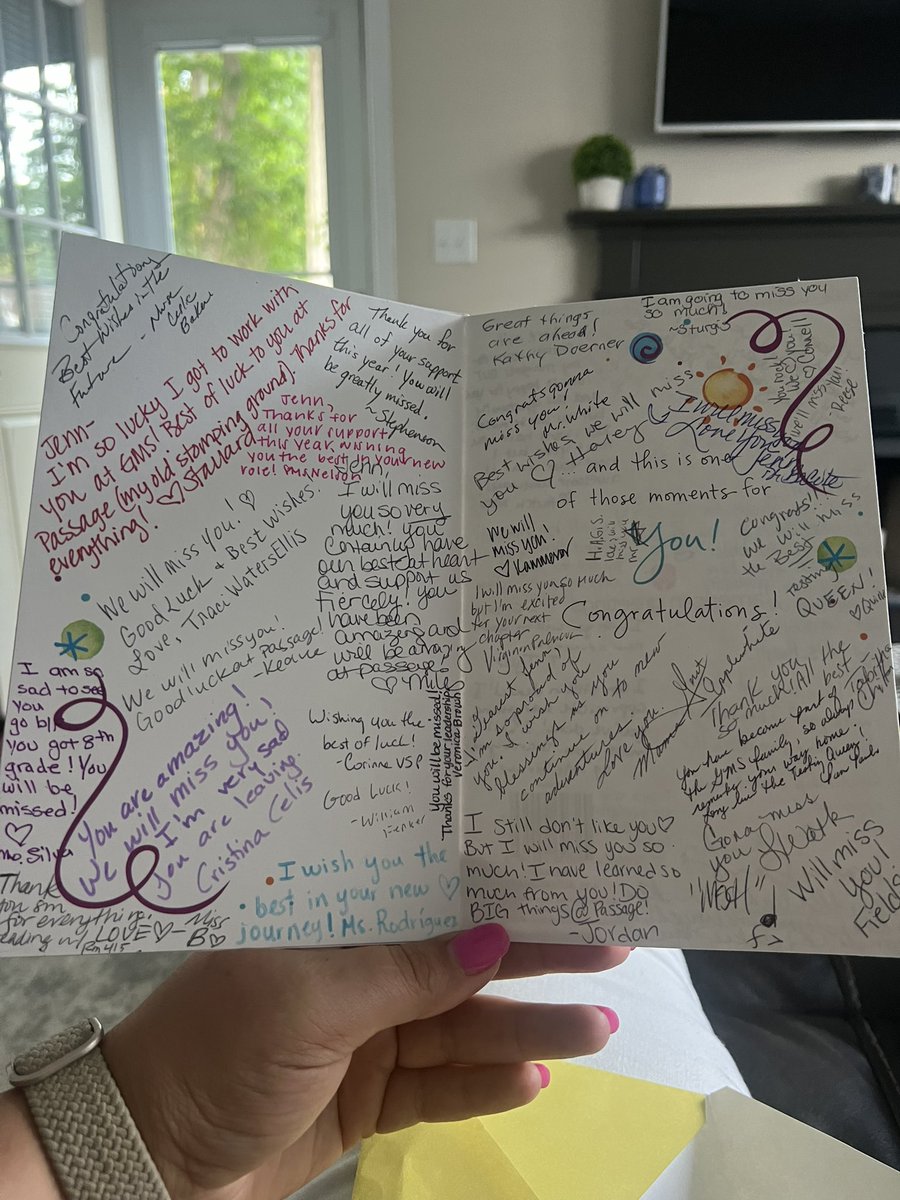 Congratulations
Best Wishes in the
Future - Nurse
Jenn-
I'm so lucky I got to work with
you at GMS! Best of luck to you at
Passage (my old stamping ground). Thanks for
everything! ♡ Stallard
Thank you for
all of your support
this year! You will
be greatly missed.
~Stephenson
Jenn,
Thanks for
all your support
this year. Wishing
you the best in your new
role! Ms. Nelson
We will miss you! ♡
Good Luck & Best Wishes.
Love, Traci Waters Ellis
Jenn,
I will miss
you so very
much! You
certainly have
our best at heart
and support us
fiercely! You
have been
amazing and
will be amazing
at passage!
We will miss you!
Good luck at passage!
I am so
sad to see
you
go b/c
you got 8th
grade! You
will be
missed!
♡
Ms. Silva
You are amazing!
We will miss you!
I'm very sad
you are leaving.
Cristina Celis
Wishing you the
best of luck!
- Corinne VSP
Good Luck!
- William
You will be missed!
Thanks for your leadership
Veronica Brown
Thank
you sm
for everything.
w/ LOVE ♡ - Miss
B ♡
Rm 415
I wish you the
best in your new ♡
journey! Ms. Rodríguez
Great things
are ahead!
Kathy Doerner
I am going to miss you
so much!
~Sturgis
Congrats gonna
miss you,
Mr. White
Best wishes, we will miss
you
Haley
You rock!
We'll miss you!
Reese
I will miss you
Love
...and this is one
of those moments for
You!
Congratulations!
We will
miss you!
♡ Kammerer
Congrats!
We will miss
the Best
testing
QUEEN!
♡ Quinn
I will miss you so much
but I'm excited
for your next
chapter
Virginia Palmour
Dearest Jenny
I'm so proud of
you. I wish you
blessings as you
continue on to new
adventures
Love you.
Thank you
so much! All the
best -
Tabitha
You have become part of
the GMS family, so always
remember your way home
Long live the Testing Queen!
I Still don't like you ♡
But I will miss you so
much! I have learned so
much from you! DO
BIG things @ Passage!
- Jordan
Gona miss
you
Will miss
you!
Fields